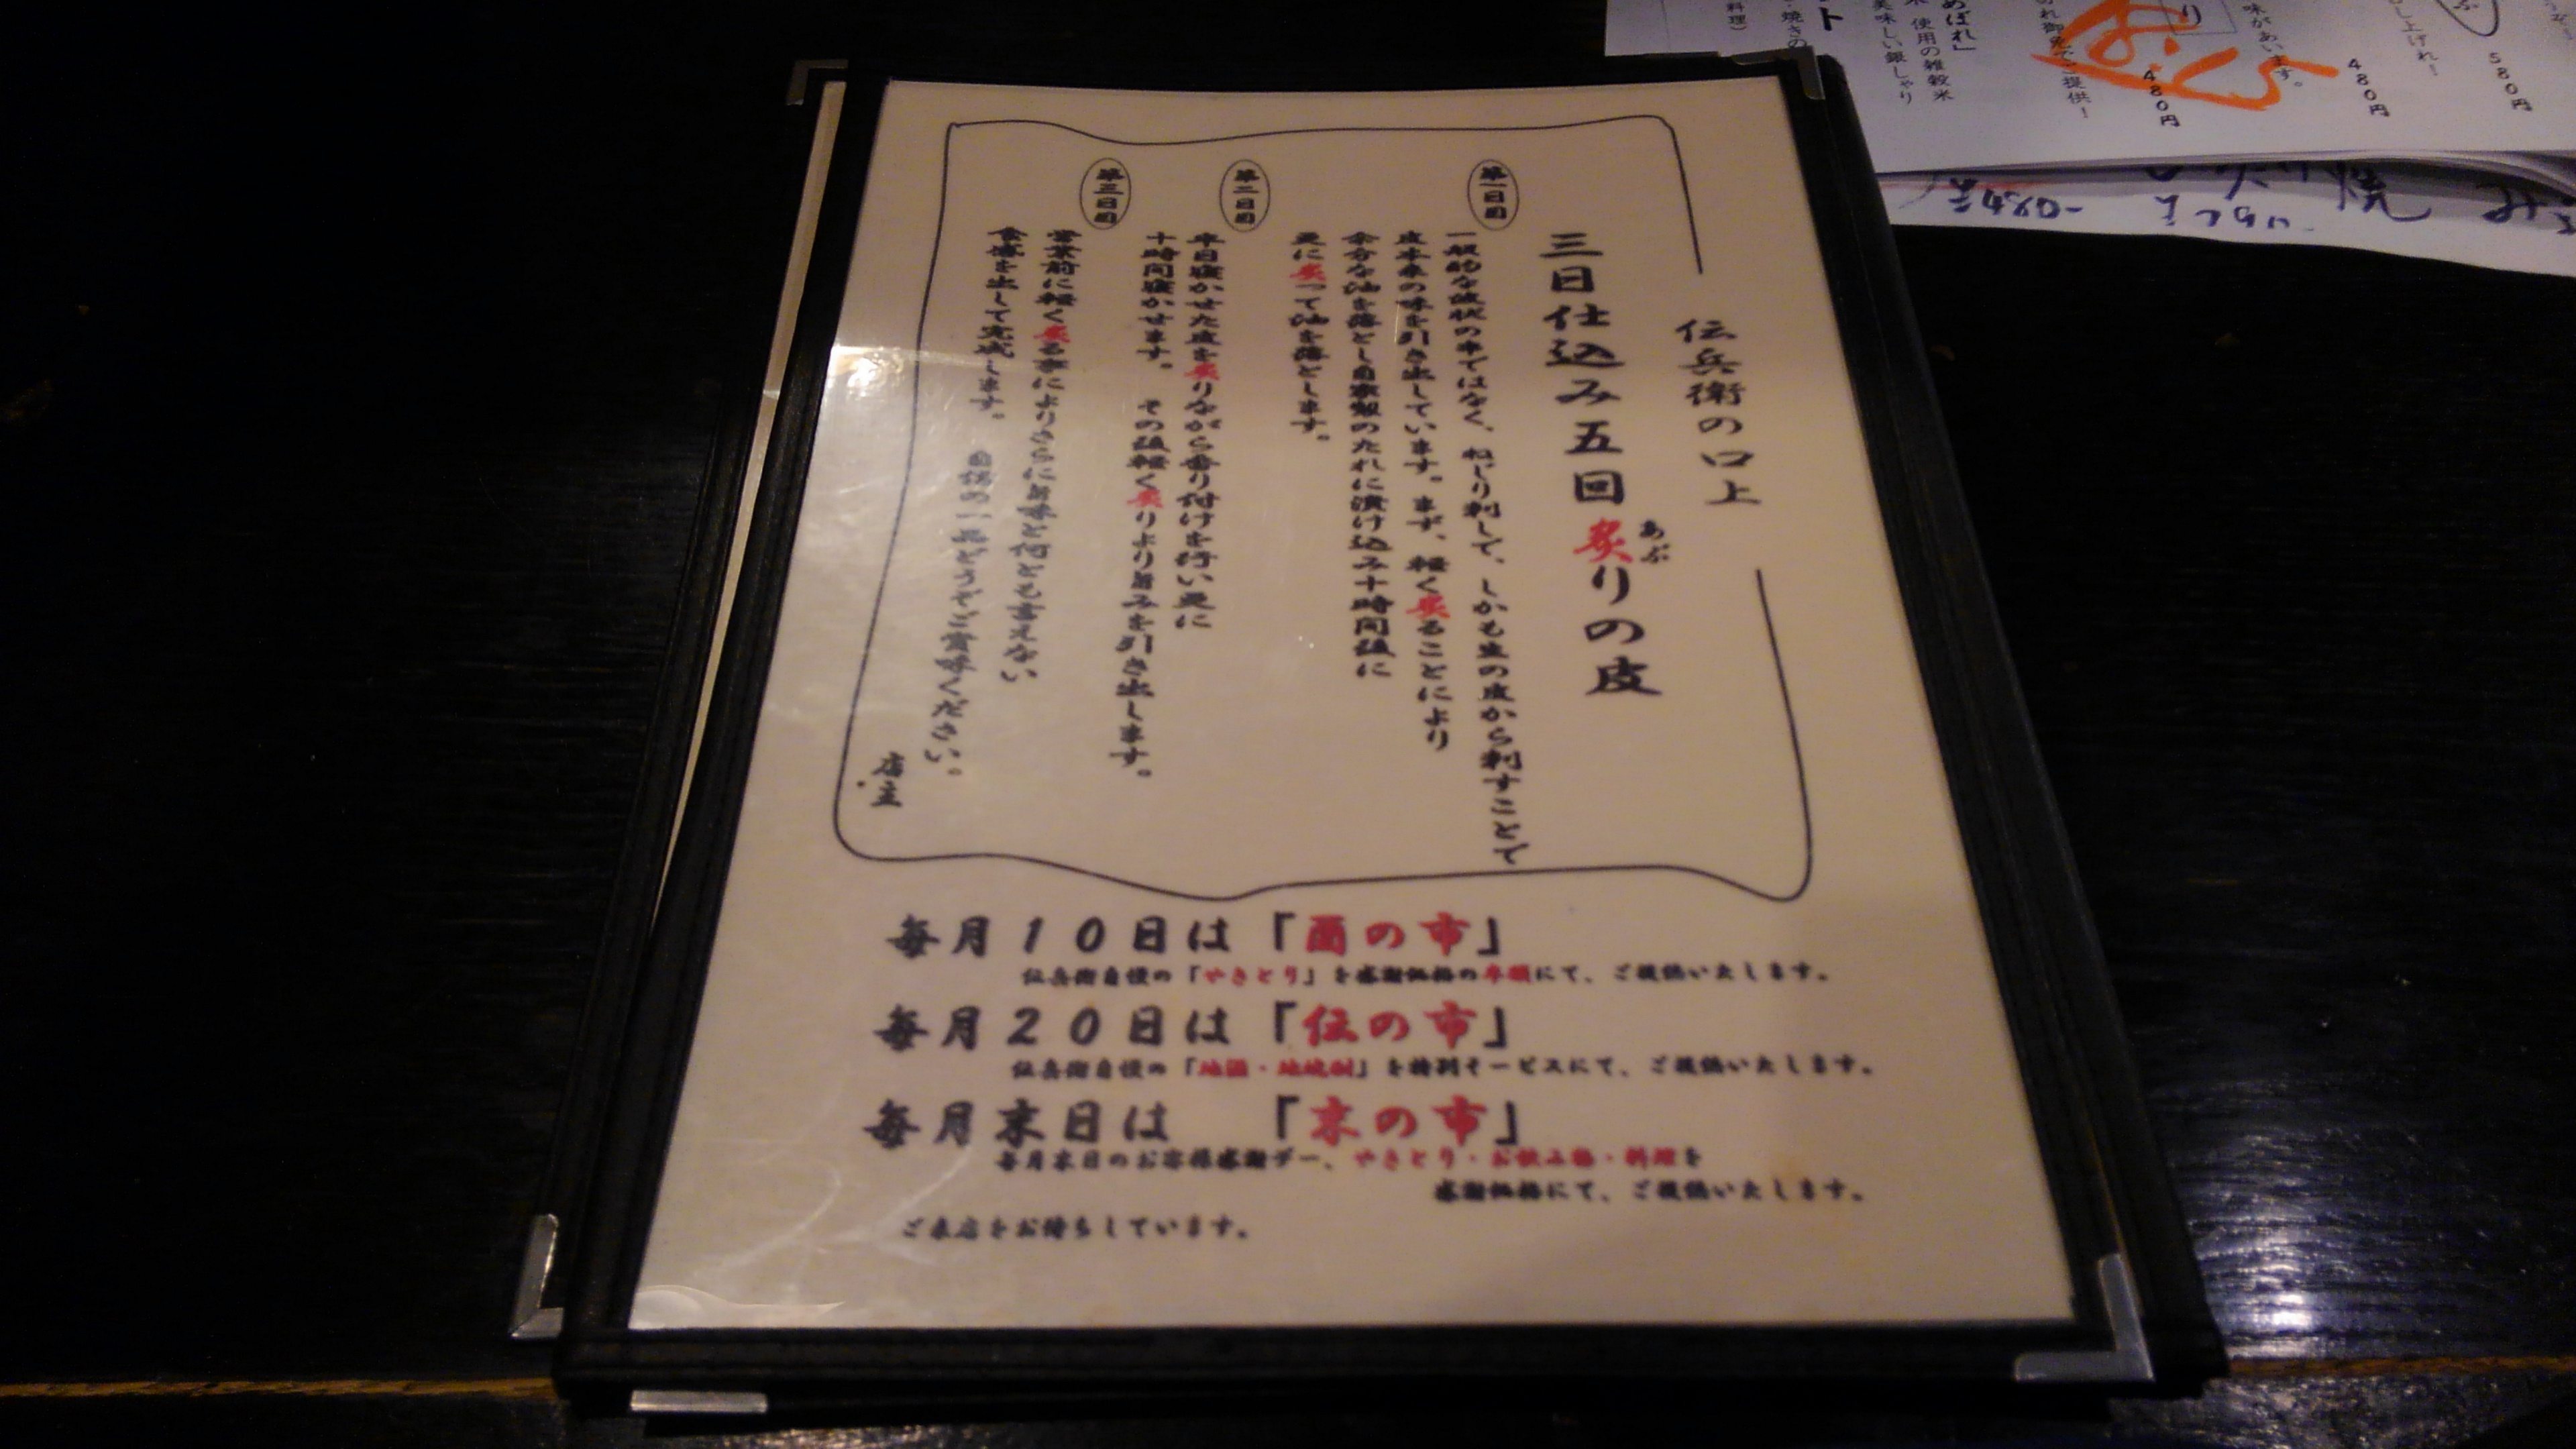 伝兵衛の口上
三日仕込み五回炙りの皮
あぶ
第一日目
一般的な波状の串ではなく、ねじり刺して、しかも生の皮から刺すことで
皮本来の味を引き出しています。まず、軽く炙ることにより
余分な油を落とし自家製のたれに漬け込み十時間後に
更に炙って油を落とします。
第二日目
半日寝かせた皮を炙りながら香り付けを行い更に
十時間寝かせます。その後軽く炙りより旨みを引き出します。
第三日目
営業前に軽く炙る事によりさらに旨味と何とも言えない
食感を出して完成します。自慢の一品どうぞご賞味ください。
店主
毎月10日は「酉の市」
伝兵衛自慢の「やきとり」を感謝価格の半額にて、ご提供いたします。
毎月20日は「伝の市」
伝兵衛自慢の「地酒・地焼酎」を特別サービスにて、ご提供いたします。
毎月末日は「末の市」
毎月末日のお客様感謝デー、やきとり・お飲み物・料理を
感謝価格にて、ご提供いたします。
ご来店をお待ちしています。
580円
480円
味があいます。
480円
ご提供!
使用の雑穀米
美味しい銀しゃり
料理)